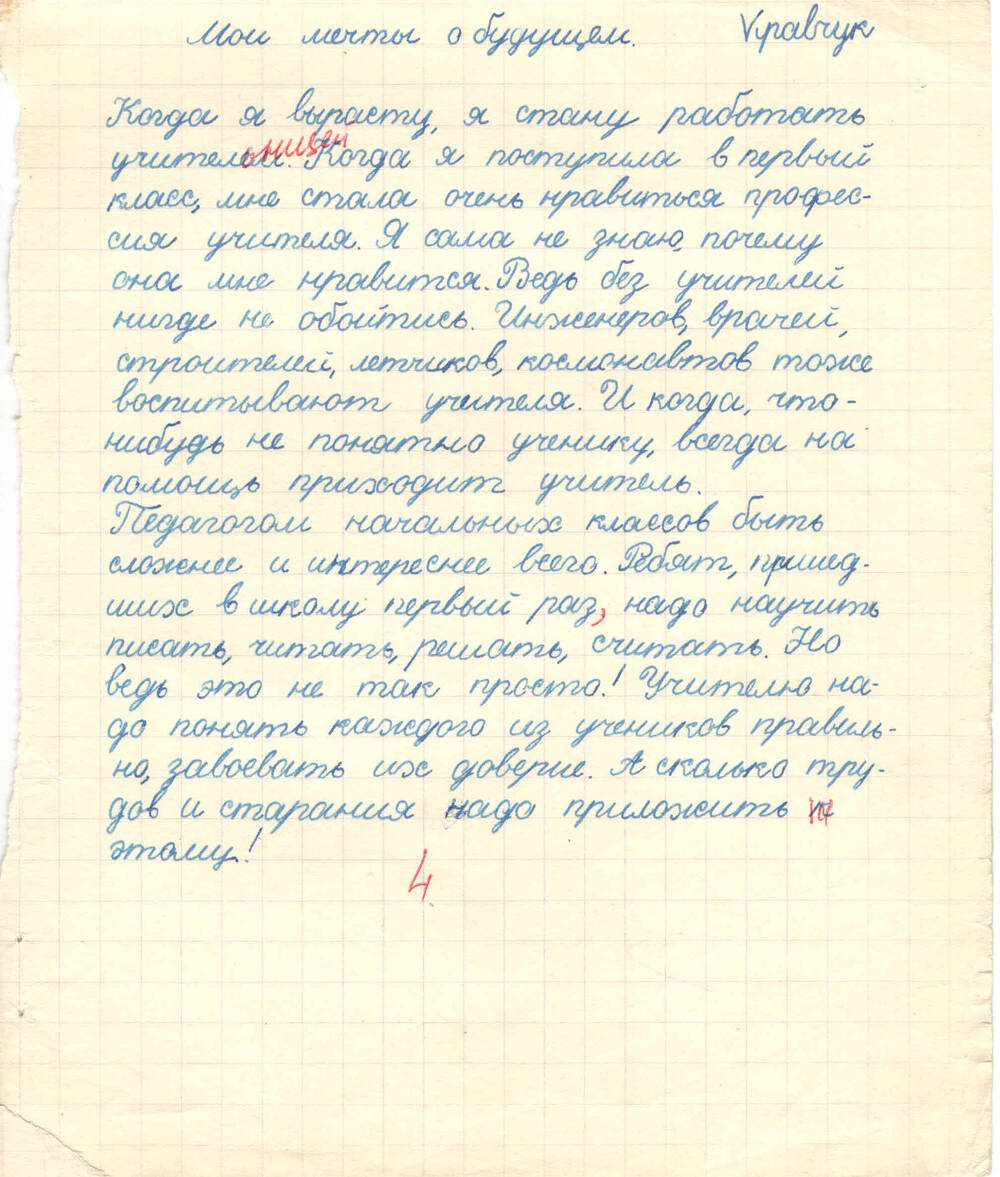 Мои мечты о будущем. Кравчук
Когда я вырасту, я стану работать
учителем. ницей Когда я поступила в первый
класс, мне стала очень нравиться профес-
сия учителя. Я сама не знаю, почему
она мне нравится. Ведь без учителей
нигде не обойтись. Инженеров, врачей,
строителей, летчиков, космонавтов тоже
воспитывают учителя. И когда, что-
нибудь не понятно ученику, всегда на
помощь приходит учитель.
Педагогом начальных классов быть
сложнее и интереснее всего. Ребят, пришед-
ших в школу первый раз, надо научить
писать, читать, решать, считать. Но
ведь это не так просто! Учителю на-
до понять каждого из учеников правиль-
но, завоевать их доверие. А сколько тру-
дов и старания надо приложить к
этому!
4